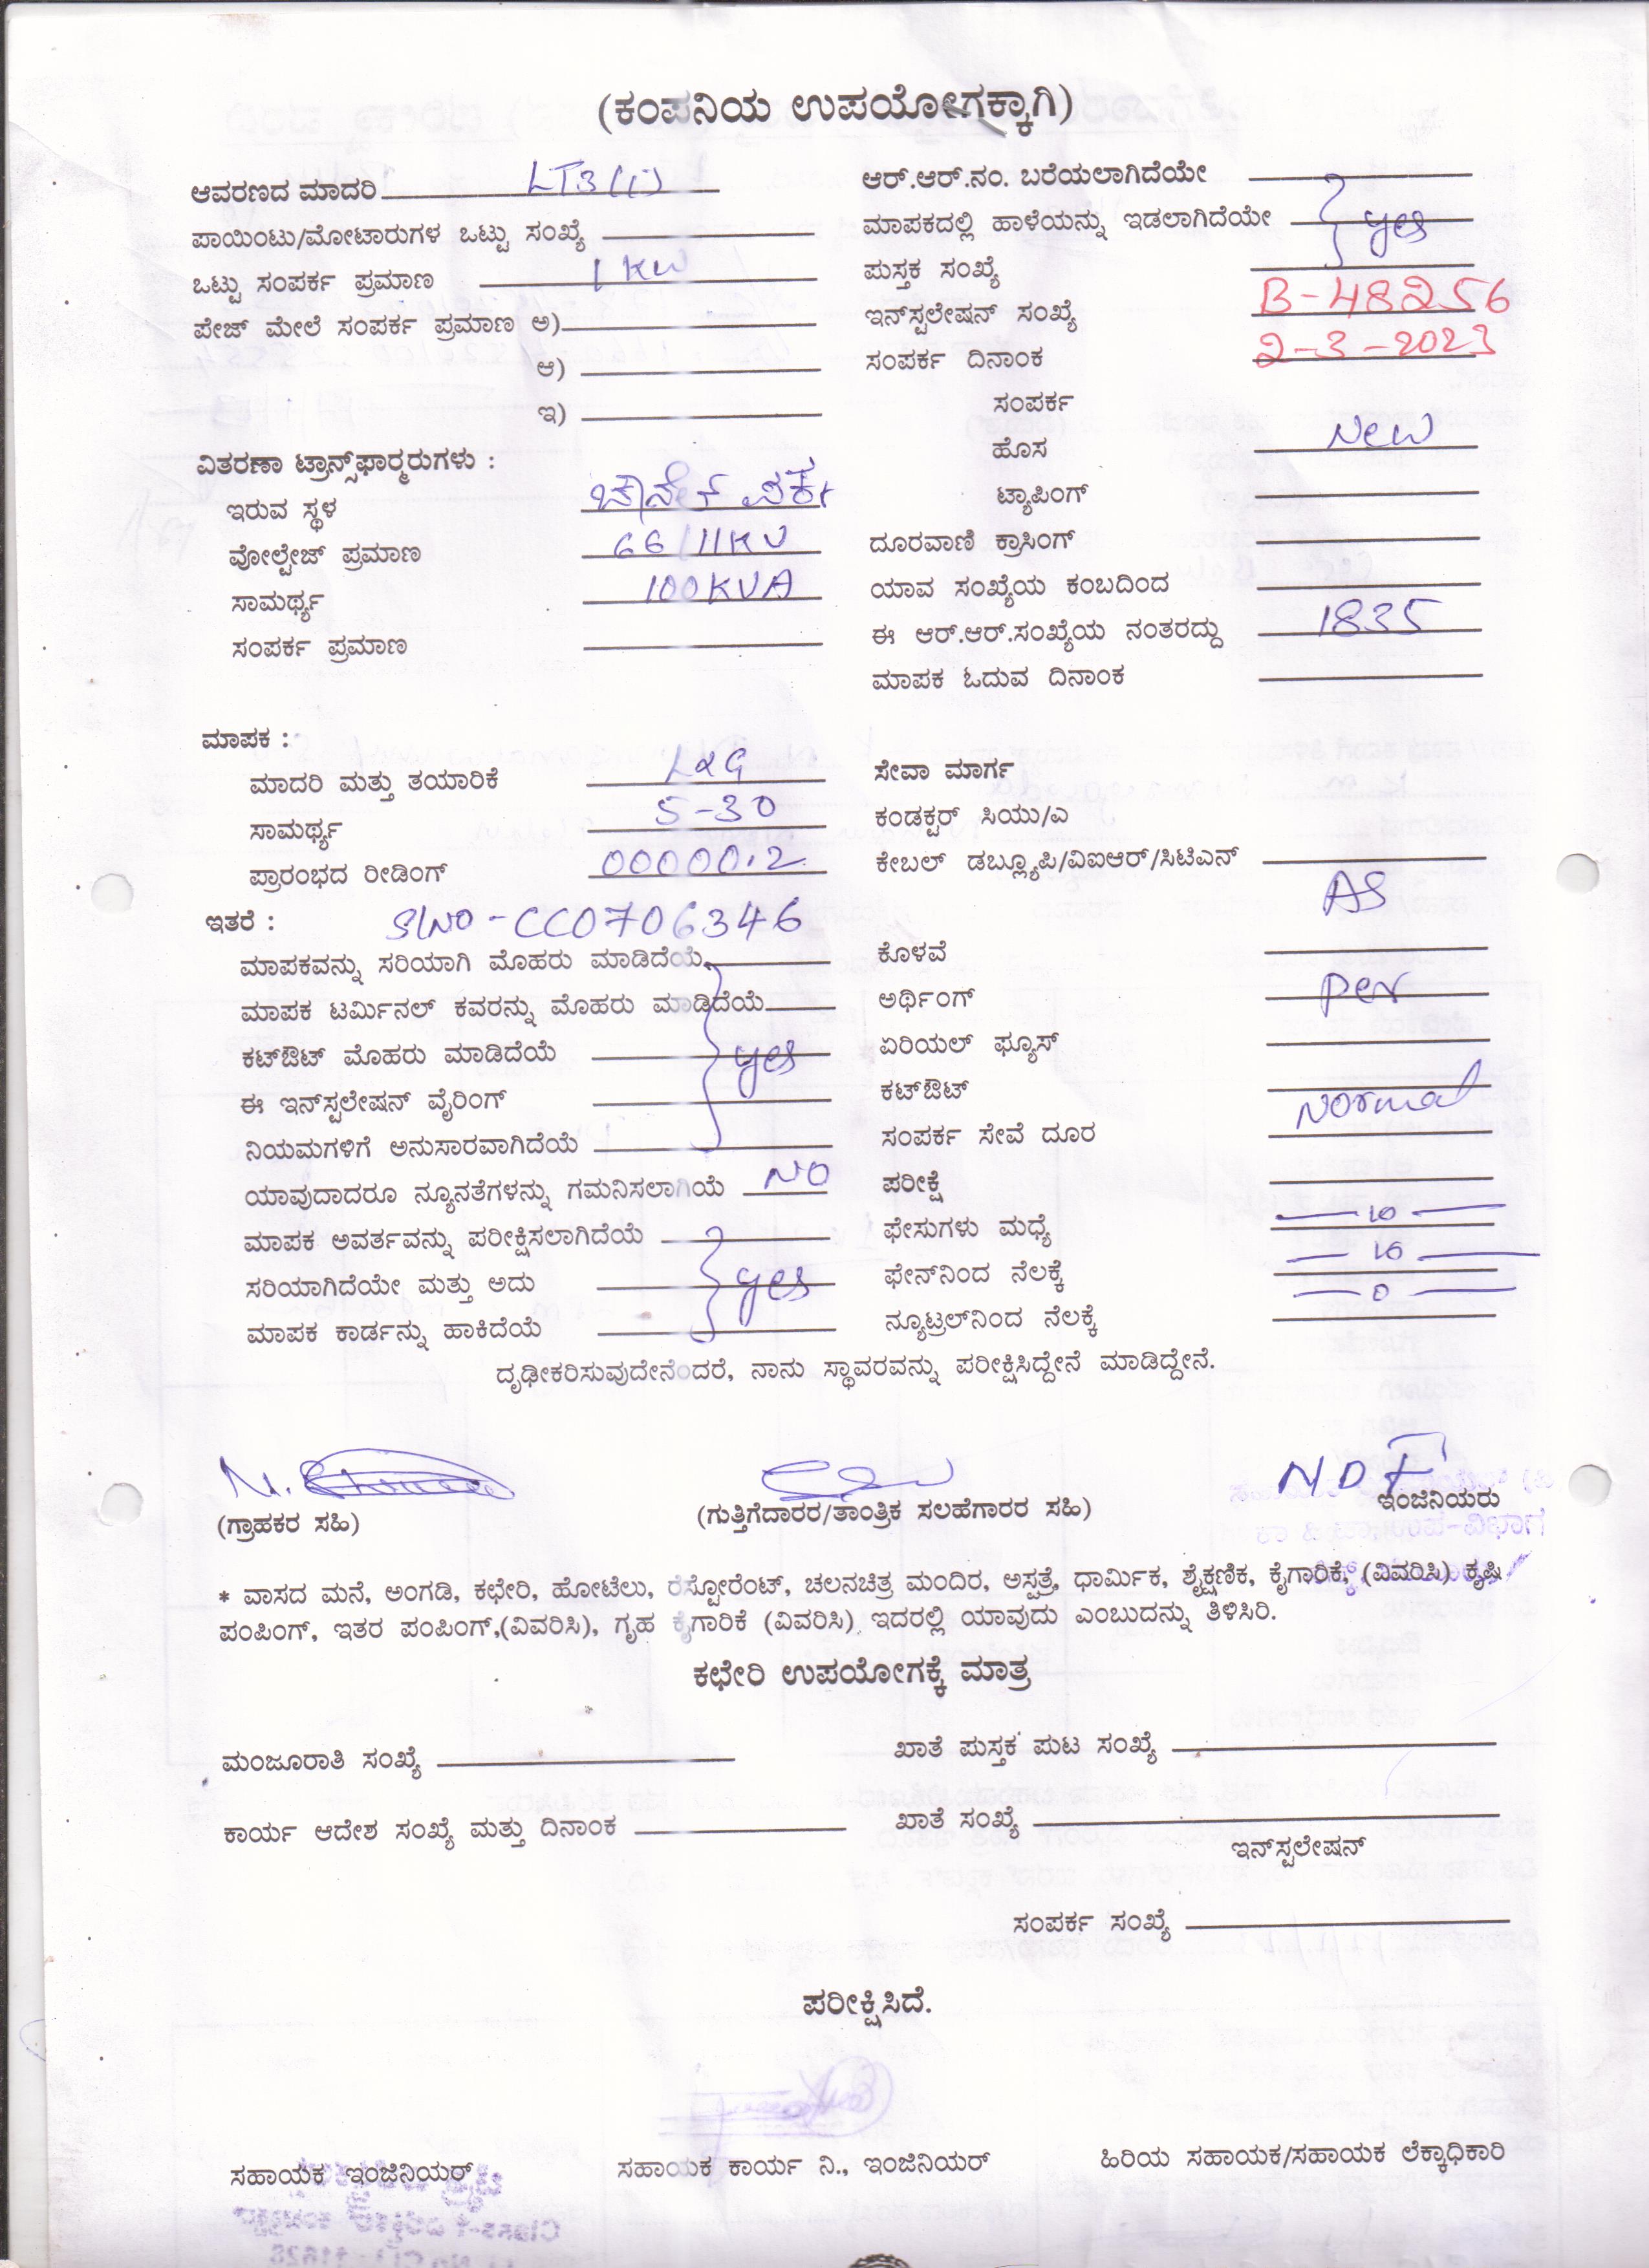 (ಕಂಪನಿಯ ಉಪಯೋಗಕ್ಕಾಗಿ)
ಆವರಣದ ಮಾದರಿ LT3(i)
ಪಾಯಿಂಟು/ಮೋಟಾರುಗಳ ಒಟ್ಟು ಸಂಖ್ಯೆ
ಒಟ್ಟು ಸಂಪರ್ಕ ಪ್ರಮಾಣ 1 KW
ಪೇಜ್ ಮೇಲೆ ಸಂಪರ್ಕ ಪ್ರಮಾಣ ಅ)
ಆ)
ಇ)
ವಿತರಣಾ ಟ್ರಾನ್ಸ್‌ಫಾರ್‍ಮರುಗಳು :
ಇರುವ ಸ್ಥಳ
ವೋಲ್ಟೇಜ್ ಪ್ರಮಾಣ 66/11KV
ಸಾಮರ್ಥ್ಯ 100KVA
ಸಂಪರ್ಕ ಪ್ರಮಾಣ
ಆರ್.ಆರ್.ನಂ. ಬರೆಯಲಾಗಿದೆಯೇ
ಮಾಪಕದಲ್ಲಿ ಹಾಳೆಯನ್ನು ಇಡಲಾಗಿದೆಯೇ yes
ಪುಸ್ತಕ ಸಂಖ್ಯೆ
ಇನ್‌ಸ್ಟಲೇಷನ್ ಸಂಖ್ಯೆ B-48256
ಸಂಪರ್ಕ ದಿನಾಂಕ 2-3-2023
ಸಂಪರ್ಕ
ಹೊಸ New
ಟ್ಯಾಪಿಂಗ್
ದೂರವಾಣಿ ಕ್ರಾಸಿಂಗ್
ಯಾವ ಸಂಖ್ಯೆಯ ಕಂಬದಿಂದ
ಈ ಆರ್.ಆರ್.ಸಂಖ್ಯೆಯ ನಂತರದ್ದು 1835
ಮಾಪಕ ಓದುವ ದಿನಾಂಕ
ಮಾಪಕ :
ಮಾದರಿ ಮತ್ತು ತಯಾರಿಕೆ L&G
ಸಾಮರ್ಥ್ಯ 5-30
ಪ್ರಾರಂಭದ ರೀಡಿಂಗ್ 000000.2
ಇತರೆ : SlNO-CC0706346
ಮಾಪಕವನ್ನು ಸರಿಯಾಗಿ ಮೊಹರು ಮಾಡಿದೆಯೆ
ಮಾಪಕ ಟರ್ಮಿನಲ್ ಕವರನ್ನು ಮೊಹರು ಮಾಡಿದೆಯೆ
ಕಟ್‌ಔಟ್ ಮೊಹರು ಮಾಡಿದೆಯೆ yes
ಈ ಇನ್‌ಸ್ಟಲೇಷನ್ ವೈರಿಂಗ್
ನಿಯಮಗಳಿಗೆ ಅನುಸಾರವಾಗಿದೆಯೆ
ಯಾವುದಾದರೂ ನ್ಯೂನತೆಗಳನ್ನು ಗಮನಿಸಲಾಗಿಯೆ NO
ಮಾಪಕ ಅವರ್ತವನ್ನು ಪರೀಕ್ಷಿಸಲಾಗಿದೆಯೆ
ಸರಿಯಾಗಿದೆಯೇ ಮತ್ತು ಅದು yes
ಮಾಪಕ ಕಾರ್ಡನ್ನು ಹಾಕಿದೆಯೆ
ಸೇವಾ ಮಾರ್ಗ
ಕಂಡಕ್ಟರ್ ಸಿಯು/ಎ
ಕೇಬಲ್ ಡಬ್ಲ್ಯೂಪಿ/ವಿಐಆರ್/ಸಿಟಿಎನ್
AS
ಕೊಳವೆ
ಅರ್ಥಿಂಗ್ per
ಏರಿಯಲ್ ಫ್ಯೂಸ್
ಕಟ್‌ಔಟ್
Normal
ಸಂಪರ್ಕ ಸೇವೆ ದೂರ
ಪರೀಕ್ಷೆ
ಫೇಸುಗಳು ಮಧ್ಯೆ
ಫೇನ್‌ನಿಂದ ನೆಲಕ್ಕೆ
ನ್ಯೂಟ್ರಲ್‌ನಿಂದ ನೆಲಕ್ಕೆ 0
ದೃಢೀಕರಿಸುವುದೇನೆಂದರೆ, ನಾನು ಸ್ಥಾವರವನ್ನು ಪರೀಕ್ಷಿಸಿದ್ದೇನೆ ಮಾಡಿದ್ದೇನೆ.
(ಗ್ರಾಹಕರ ಸಹಿ) (ಗುತ್ತಿಗೆದಾರರ/ತಾಂತ್ರಿಕ ಸಲಹೆಗಾರರ ಸಹಿ) ಇಂಜಿನಿಯರು
* ವಾಸದ ಮನೆ, ಅಂಗಡಿ, ಕಛೇರಿ, ಹೋಟೆಲು, ರೆಸ್ಟೋರೆಂಟ್, ಚಲನಚಿತ್ರ ಮಂದಿರ, ಅಸ್ಪತ್ರೆ, ಧಾರ್ಮಿಕ, ಶೈಕ್ಷಣಿಕ, ಕೈಗಾರಿಕೆ, (ವಿವರಿಸಿ) ಕೃಷಿ
ಪಂಪಿಂಗ್, ಇತರ ಪಂಪಿಂಗ್,(ವಿವರಿಸಿ), ಗೃಹ ಕೈಗಾರಿಕೆ (ವಿವರಿಸಿ) ಇದರಲ್ಲಿ ಯಾವುದು ಎಂಬುದನ್ನು ತಿಳಿಸಿರಿ.
ಕಛೇರಿ ಉಪಯೋಗಕ್ಕೆ ಮಾತ್ರ
ಮಂಜೂರಾತಿ ಸಂಖ್ಯೆ ಖಾತೆ ಪುಸ್ತಕ ಪುಟ ಸಂಖ್ಯೆ
ಕಾರ್ಯ ಆದೇಶ ಸಂಖ್ಯೆ ಮತ್ತು ದಿನಾಂಕ ಖಾತೆ ಸಂಖ್ಯೆ
ಇನ್‌ಸ್ಟಲೇಷನ್
ಸಂಪರ್ಕ ಸಂಖ್ಯೆ
ಪರೀಕ್ಷಿಸಿದೆ.
ಸಹಾಯಕ ಇಂಜಿನಿಯರ್ ಸಹಾಯಕ ಕಾರ್ಯ ನಿ., ಇಂಜಿನಿಯರ್ ಹಿರಿಯ ಸಹಾಯಕ/ಸಹಾಯಕ ಲೆಕ್ಕಾಧಿಕಾರಿ